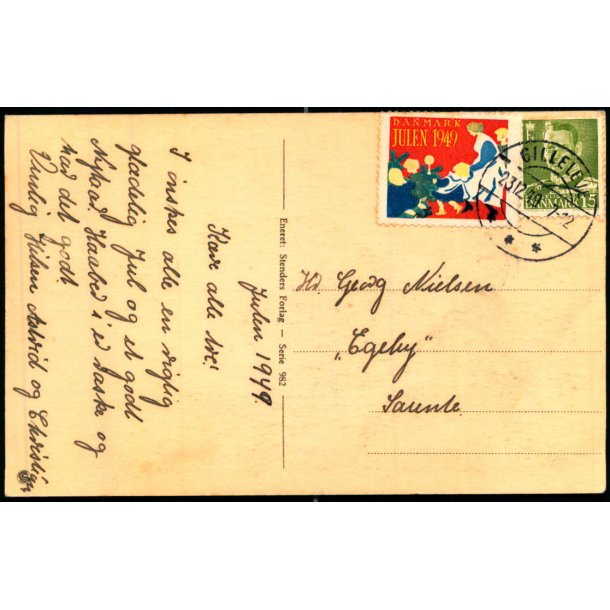 Julen 1949.
Kære alle tre!
I ønskes alle en rigtig
glædelig Jul og et godt
Nytaar. Haaber I er raske og
har det godt
Venlig Hilsen Astrid og Christian
Eneret: Stenders Forlag — Serie 982
DANMARK
JULEN 1949
DANMARK 15
GILLELEJE
23.12.49. 7-12
Hr. Georg Nielsen
„Egeby”
Saunte.